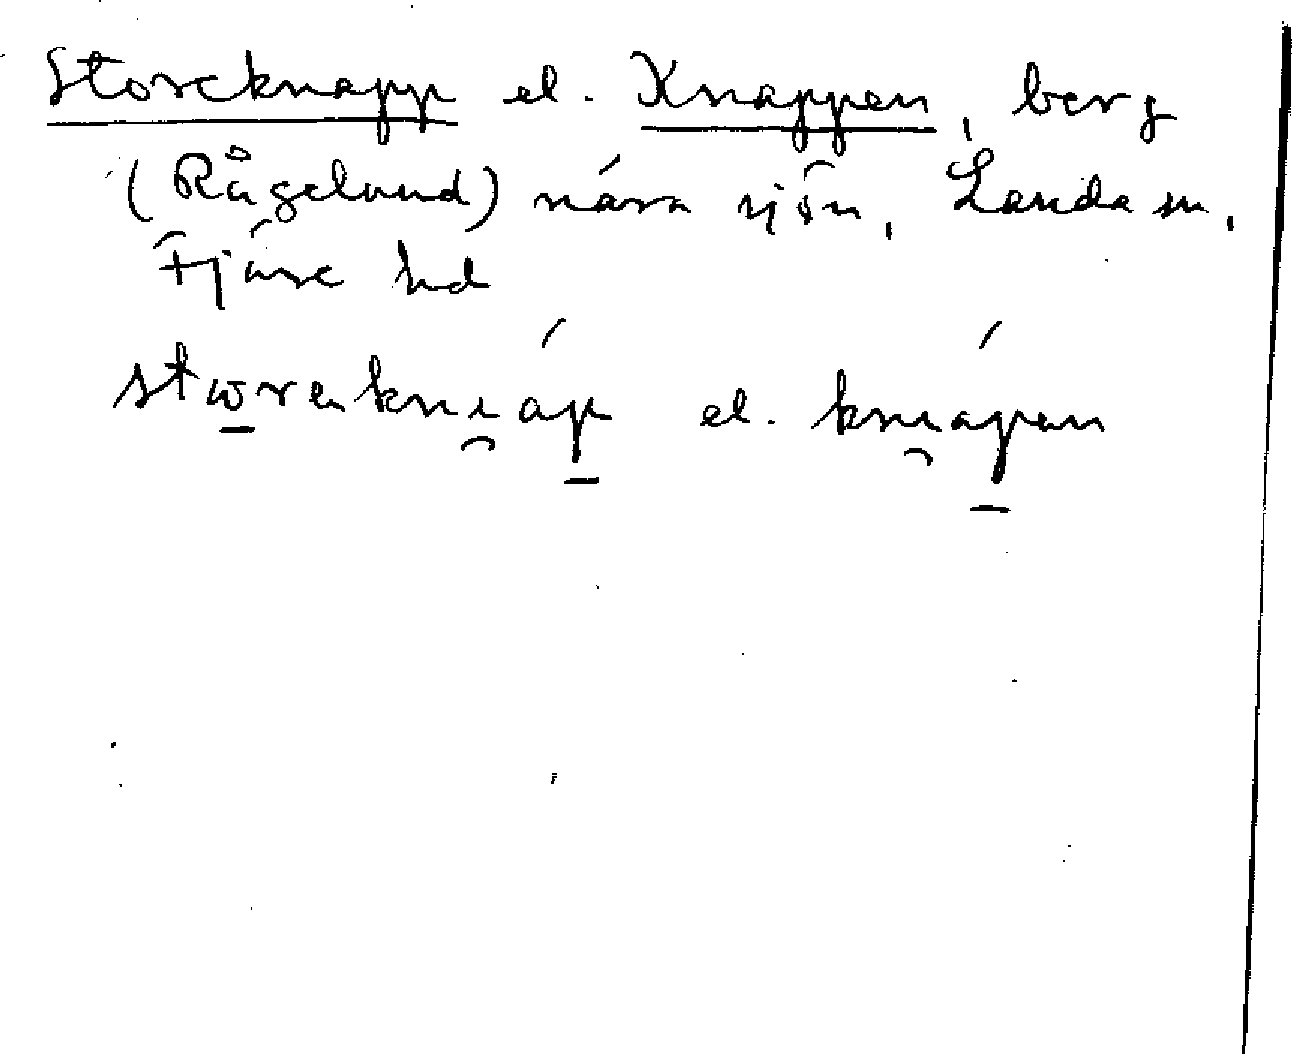 Storeknapp el. Knappen, berg
(Rågelund) nära sjön, Landa sn,
Fjäre hd
stω̱renkni̯áp̱ el. kni̯áp̱en